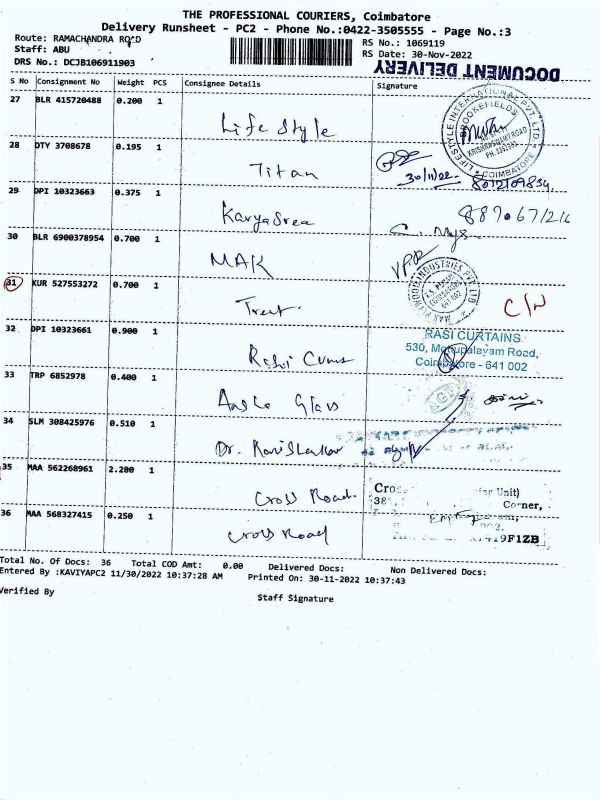 THE PROFESSIONAL COURIERS, Coimbatore
Delivery Runsheet - PC2 - Phone No.:0422-3505555 - Page No.:3
Route: RAMACHANDRA ROAD
RS No.: 1069119
Staff: ABU
RS Date: 30-Nov-2022
DRS No.: DCJB106911903
DOCUMENT DELIVERY
S No Consignment No Weight PCS Consignee Details Signature
27 BLR 415720488 0.200 1 Life Style
LIFESTYLE INTERNATIONAL PVT. LTD.
BROOKEFIELDS
KRISHNASWAMY ROAD
COIMBATORE
28 DTY 3708678 0.195 1 Titan
30/11/22
29 DPI 10323663 0.375 1 KavyaSree
30 BLR 6900378954 0.700 1 MAK
31 KUR 527553272 0.700 1 Trent
C/N
32 DPI 10323661 0.900 1
RASI CURTAINS
530, Mettupalayam Road,
Coimbatore - 641 002
33 TRP 6852978 0.400 1 Glass
34 SLM 308425976 0.510 1 Dr. Ravishankar
35 MAA 562268961 2.280 1 Cross Road
Unit)
Corner,
36 MAA 568327415 0.250 1 Cross Road
Total No. Of Docs: 36 Total COD Amt: 0.00 Delivered Docs: Non Delivered Docs:
Entered By :KAVIYAPC2 11/30/2022 10:37:28 AM Printed On: 30-11-2022 10:37:43
Verified By
Staff Signature